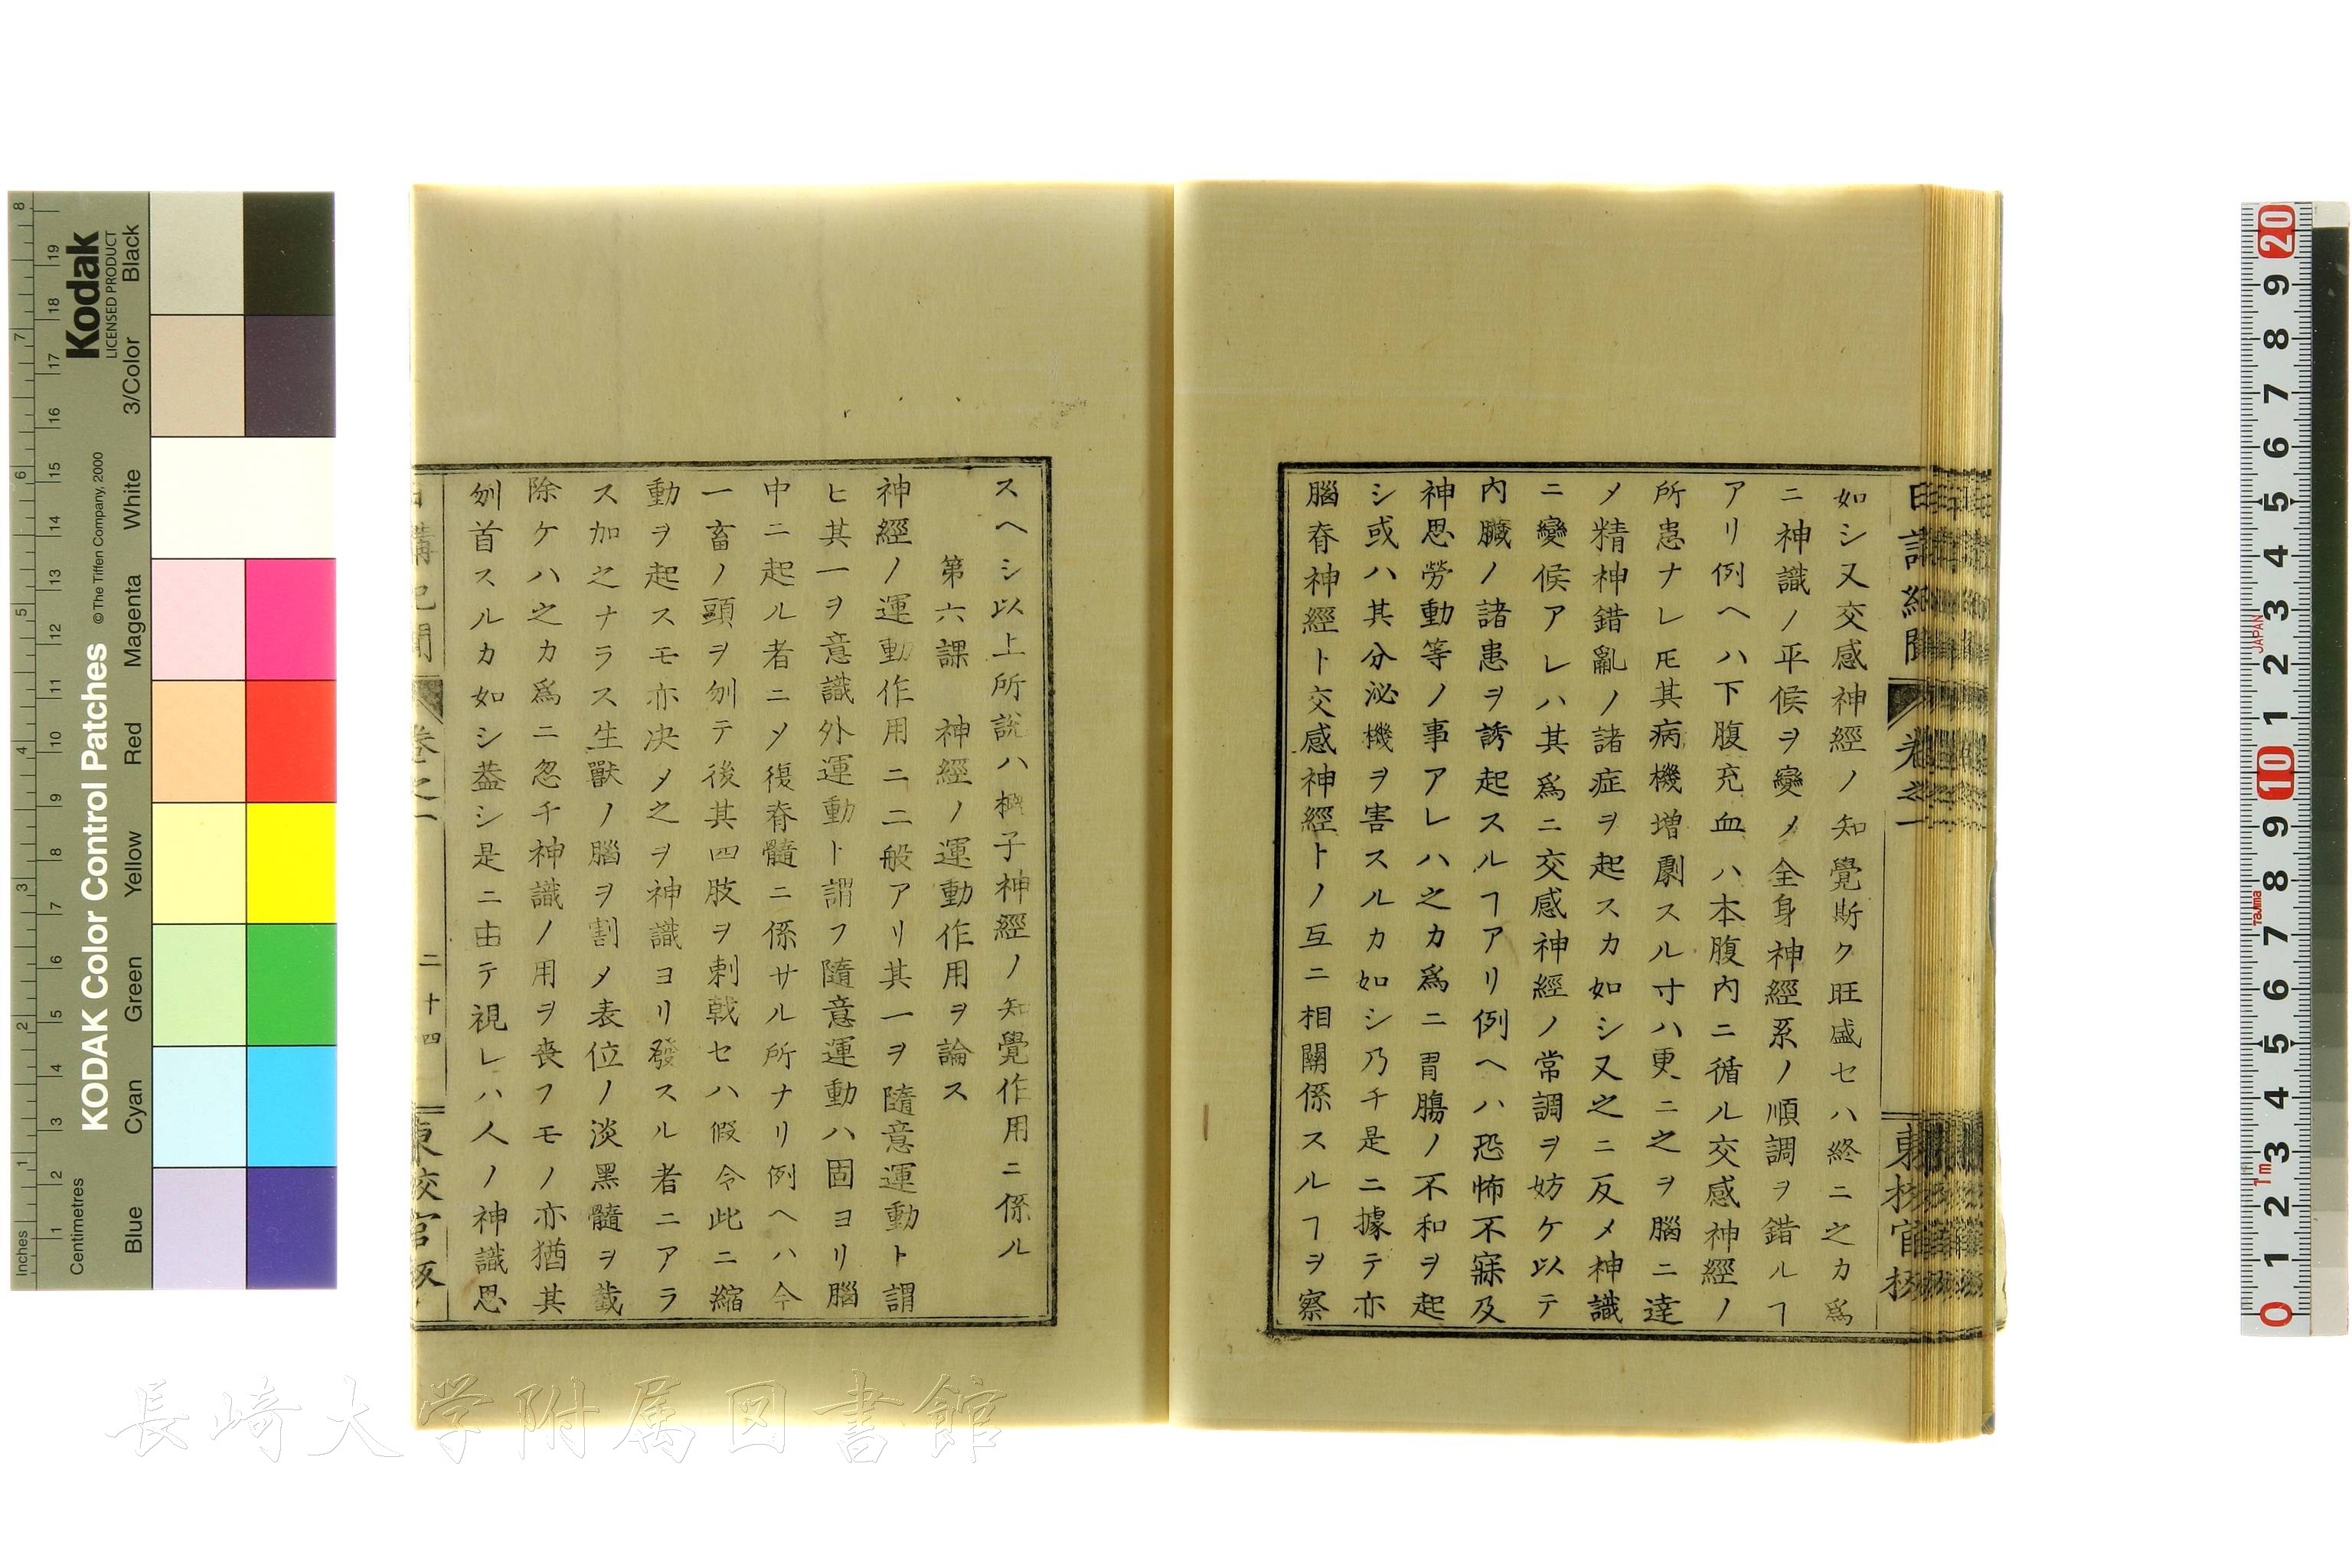 如シ又交感神經ノ知覺斯ク旺盛セハ終ニ之カ爲
ニ神識ノ平候ヲ變メ全身神經系ノ順調ヲ錯ルヿ
アリ例ヘハ下腹充血ハ本腹内ニ循ル交感神經ノ
所患ナレ𪜈其病機増劇スル寸ハ更ニ之ヲ腦ニ達
メ精神錯亂ノ諸症ヲ起スカ如シ又之ニ反メ神識
ニ變候アレハ其爲ニ交感神經ノ常調ヲ妨ケ以テ
内臓ノ諸患ヲ誘起スルヿアリ例ヘハ恐怖不寐及
神思勞動等ノ事アレハ之カ爲ニ胃腸ノ不和ヲ起
シ或ハ其分泌機ヲ害スルカ如シ乃チ是ニ據テ亦
腦脊神經ト交感神經トノ互ニ相關係スルヿヲ察
スヘシ以上所説ハ樞子神經ノ知覺作用ニ係ル
第六課 神經ノ運動作用ヲ論ス
神經ノ運動作用ニ二般アリ其一ヲ隨意運動ト謂
ヒ其一ヲ意識外運動ト謂フ隨意運動ハ固ヨリ腦
中ニ起ル者ニメ復脊髓ニ係サル所ナリ例ヘハ今
一畜ノ頭ヲ刎テ後其四肢ヲ刺戟セハ假令此ニ縮
動ヲ起スモ亦决メ之ヲ神識ヨリ發スル者ニアラ
ス加之ナラス生獸ノ腦ヲ割メ表位ノ淡黑髓ヲ截
除ケハ之カ爲ニ忽チ神識ノ用ヲ喪フモノ亦猶其
刎首スルカ如シ蓋シ是ニ由テ視レハ人ノ神識思
卷之一
二十四
KODAK Color Control Patches
© The Tiffen Company, 2000
Kodak
LICENSED PRODUCT
Inches
Centimetres
Blue Cyan Green Yellow Red Magenta White 3/Color Black
1 2 3 4 5 6 7 8
1 2 3 4 5 6 7 8 9 10 11 12 13 14 15 16 17 18 19
0 1 2 3 4 5 6 7 8 9 10 1 2 3 4 5 6 7 8 9 20
1m Tajima JAPAN
長崎大学附属図書館